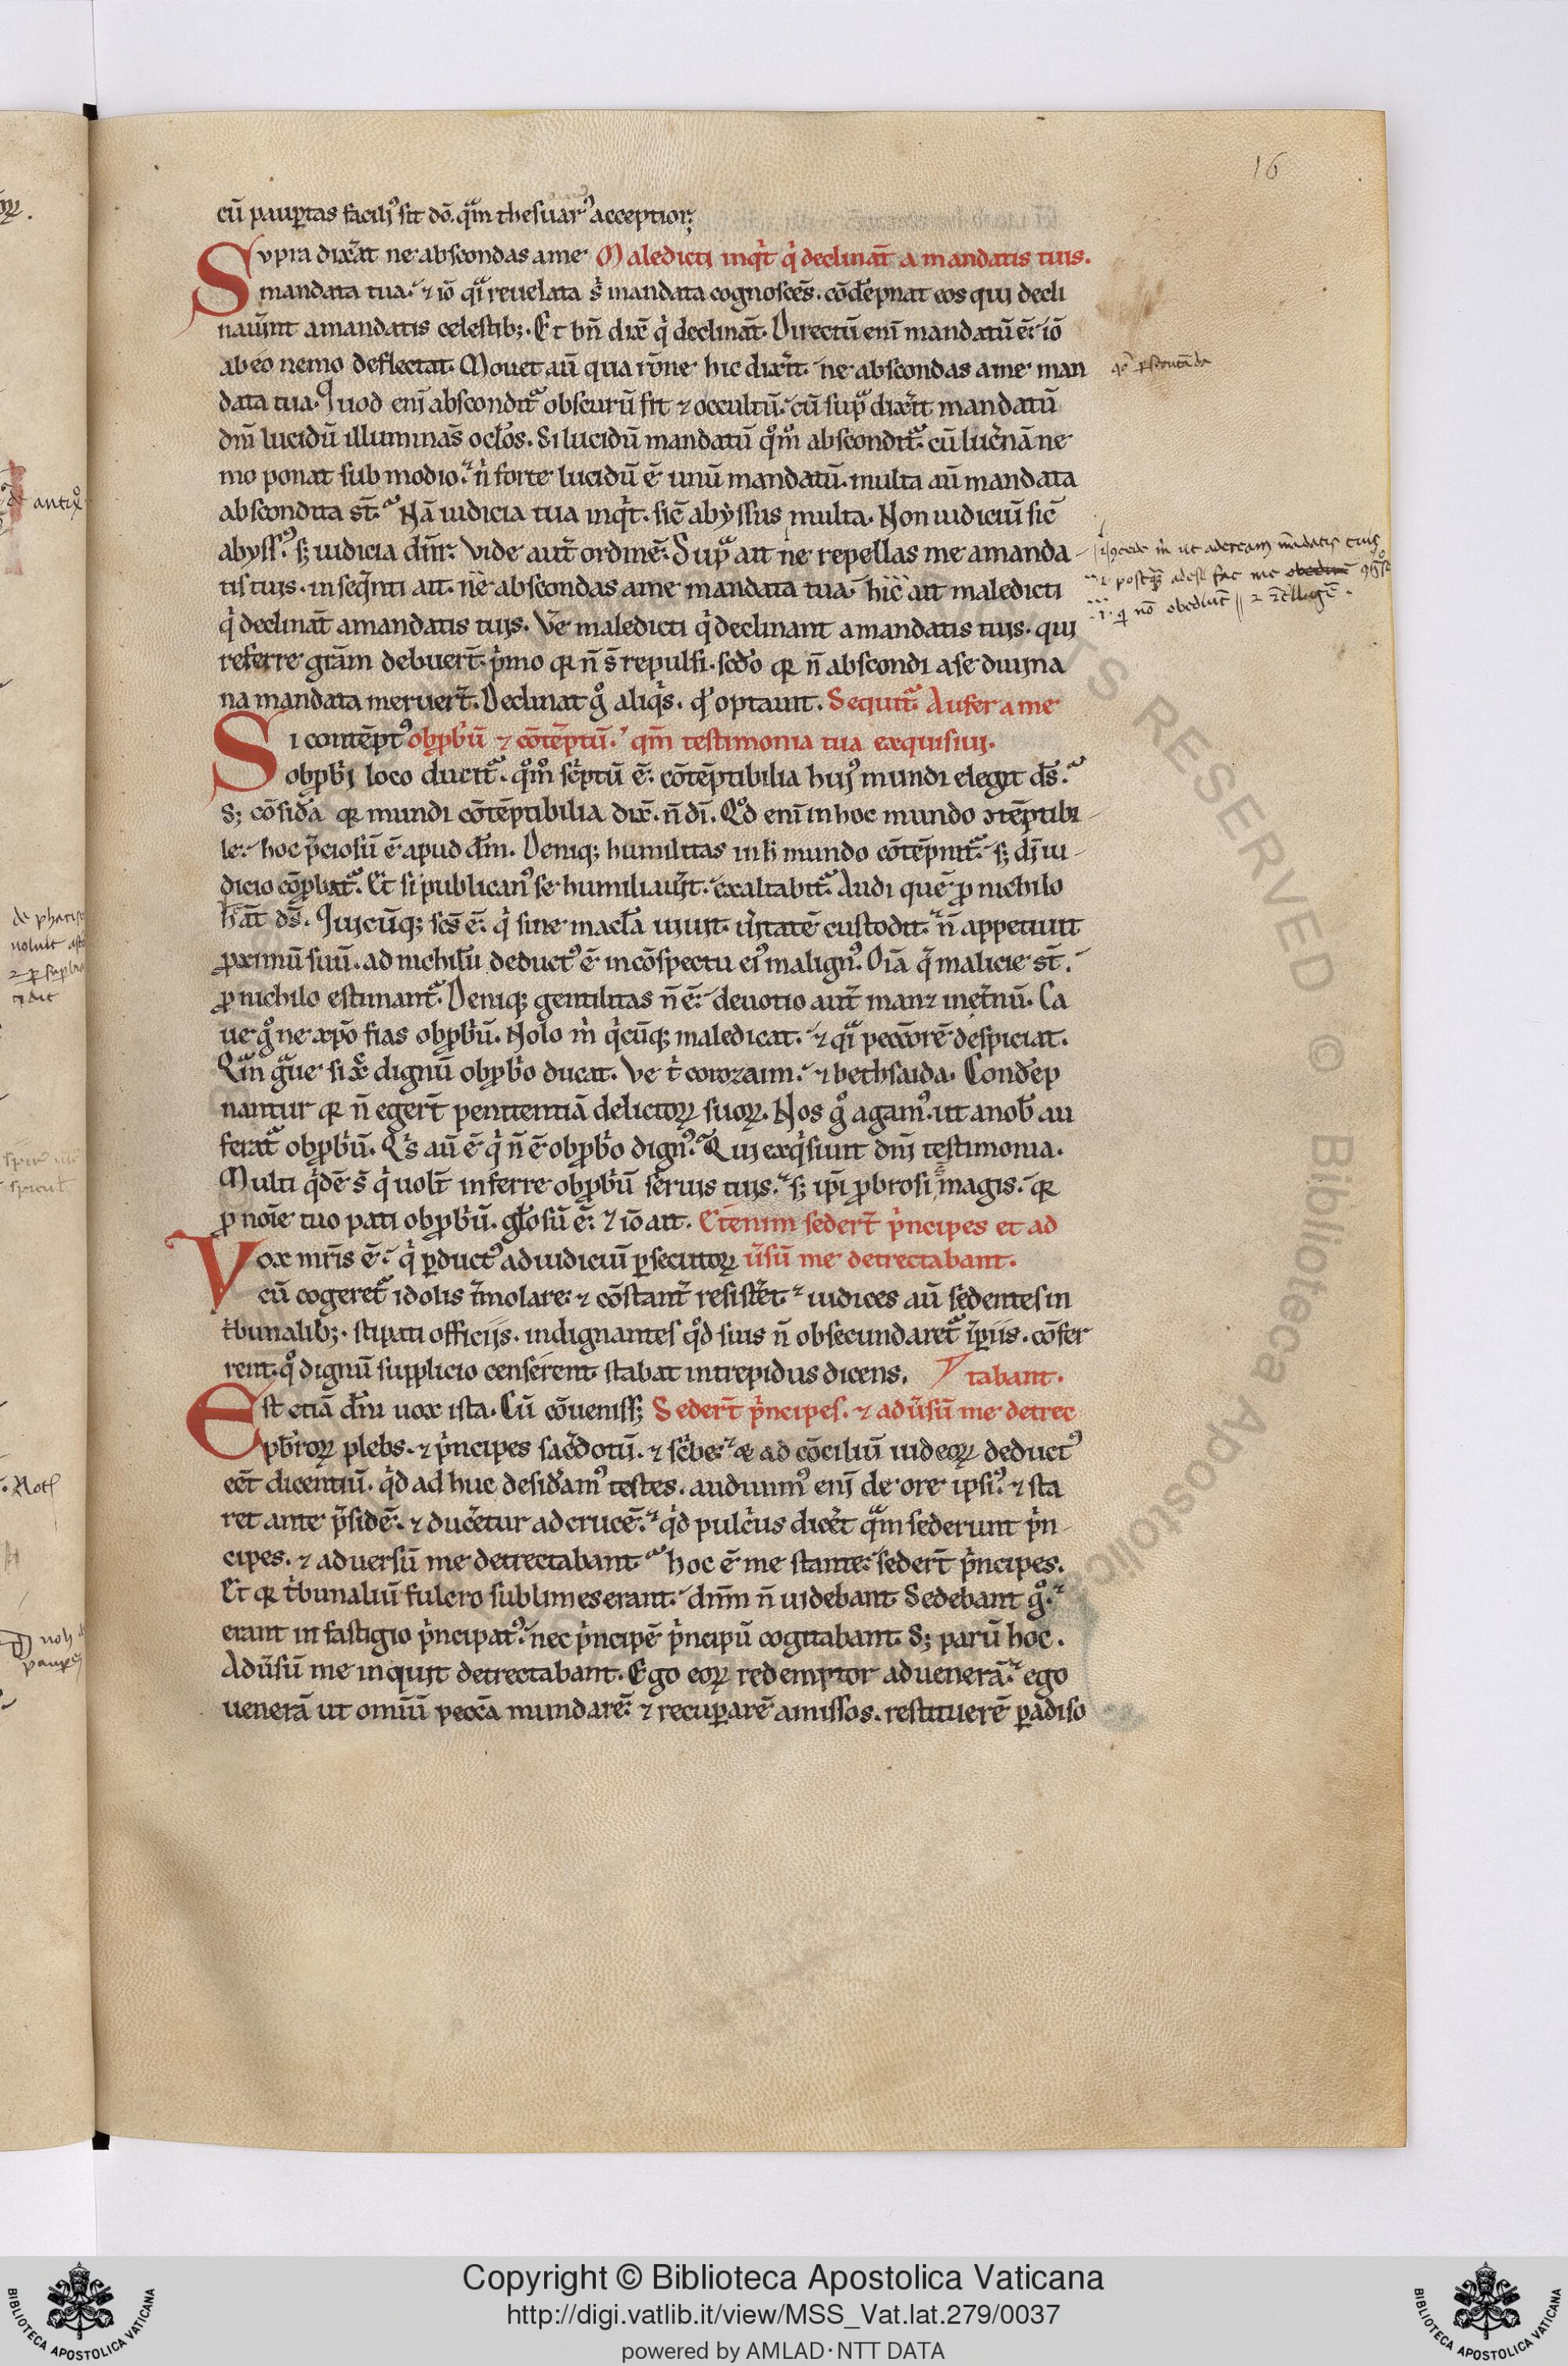 16
cū paup̄tas facili⁹ sit dō. qᵃm thesuar⁹ acceptior;
Supra dix̄at ne abscondas a me Maledicti inq̄t q̇ declināt a mandatis tuis.
mandata tua. ⁊ iō qᵃi reuelata s̄ mandata cognoscēs. cōdēpnat eos qui decli
nauint a mandatis celestib;. Et bn̄ dix̄ q̇ declināt. Directū enī mandatū ē. iō
ab eo nemo deflectat. Mouet aū qua rōne hic dix̄it. ne abscondas a me man
data tua. Quod eni abscondit᷑ obscurū sit ⁊ occultū. cū supᵃ dix̄it mandatū
dnī lucidū illuminās oclos. Si lucidū mandatū qᵒmᵒ abscondit᷑. cū lucnā ne
mo ponat sub modio. n̄ forte lucidū ē unū mandatū. multa aū mandata
abscondita st̄. Nā iudicia tua inq̇t. sic̄ abyssus multa. Non iudiciū sic̄
abyss⁹. s; iudicia dn̄i. Vide aut̄ ordinē. Supᵃ ait ne repellas me a manda
tis tuis. in seq̄nti ait. ne abscondas a me mandata tua. hic ait maledicti
q̇ declināt a mandatis tuis. Ve maledicti q̇ declinant a mandatis tuis. qui
referre grām debuert̄. ṗmo qꝛ n̄ s̄ repulsi. scdo qꝛ n̄ abscondi a se diuina
na mandata meruert̄. Declinat gᵒ aliq̇s. qᵈ optauit. Sequit᷑ Aufer a me
Si contēpt⁹ obp̄bū ⁊ cōtēptū. qm̄ testimonia tua exquisiui.
obp̄bij loco ducit᷑. qᵒmᵒ sc̄ptū ē. cōtēptibilia hui⁹ mundi elegit ds̄.
S; cōsid̄a qꝛ mundi cōtēptibilia dix̄. n̄ dī. Qᵒd enī in hoc mundo ↄtēptibi
le. hoc p̄ciosū ē apud dm̄. Deniq; humilitas in h̄ mundo cōtēpnit᷑. s; dī iu
dicio cōp̄bat᷑. Et si publican⁹ se humiliauit. exaltabit᷑. Audi quē pro nichilo
h̄at ds̄. Quicūq; scs̄ ē. q̇ sine macla uiuit. uitatē custodit. n̄ appetiuit
proximū suū. ad nichilū deduct⁹ ē in cōspectu ei⁹ malign⁹. Oīa q̄ malicie st̄.
pro nichilo estimant᷑. Deniq; gentilitas n̄ ē. deuotio aut̄ manz in et̄nū. Ca
ue gᵒ ne xp̄o fias obp̄bū. Nolo m̄ q̇cūq; maledicat. ⁊ qᵃi peccorē despiciat.
Qᵃm gᵃue si xp̄c dignū obp̄bo ducat. Ve t̄ corozaim. ⁊ bethsaida. Condēp
nantur qꝛ n̄ egert̄ penitentiā delictoꝝ suoꝝ. Nos gᵒ agam⁹. ut a nob̄ au
ferat᷑ obp̄bū. Q̇s aū ē q̇ n̄ ē obp̄bo dign⁹. Qui exq̇siuit dnī testimonia.
Multi q̇dē s̄ q̇ uolt̄ inferre obp̄bū seruis tuis. s; ip̄i probrosi magis. qꝛ
pro noīe tuo pati obp̄bū. gl̄osū ē. ⁊ iō ait. Etenim sedert̄ p̄ncipes et ad
Vox mr̄is ē. q̇ perduct⁹ ad iudiciū persecutoꝝ ūsū me detrectabant.
cū cogeret᷑ idolis īmolare. ⁊ cōstant̄ resist̄et. iudices aū sedentes in
tbunalib;. stipati officiis. indignantes qᵒd suis n̄ obsecundaret᷑ īperiis. cōfer
rent. qᵒ dignū supplicio censerent. stabat intrepidus dicens. tabant.
Est etiā dn̄i uox ista. Cū cōueniss; Sedert̄ p̄ncipes. ⁊ aduersū me detrec
pb̄roꝝ plebs. ⁊ p̄ncipes sac̄dotū. ⁊ sc̄be. ac ad cōciliū iudeoꝝ deduct⁹
eēt dicentiū. q̇d ad huc desid̄am⁹ testes. audiuim⁹ eni de ore ipsi⁹. ⁊ sta
ret ante p̄sidē. ⁊ duc̄etur ad crucē. q̇d pulc̄us dic̄et qᵃm sederunt p̄n
cipes. ⁊ aduersū me detrectabant. hoc ē me stante. sedert̄ p̄ncipes.
Et qꝛ tbunaliū fulcro sublimes erant. dn̄m n̄ uidebant. Sedebant gᵒ.
erant in fastigio p̄ncipat⁹. nec p̄ncipē p̄ncipū cogitabant. S; parū hoc.
Adūsū me inquit detrectabant. Ego eoꝝ redemptor adueneram. ego
uenerā ut omiū pecca mundarē. ⁊ recuperarē amissos. restituerē paradiso
Copyright © Biblioteca Apostolica Vaticana
http://digi.vatlib.it/view/MSS_Vat.lat.279/0037
powered by AMLAD·NTT DATA